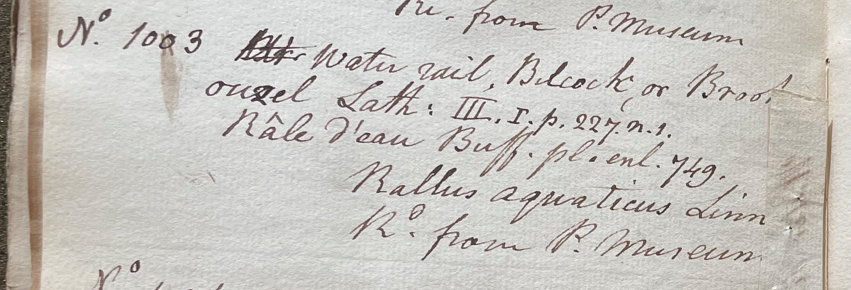 Rº. from P. Museum
Nº. 1003 Water rail, Bilcock, or Brook
ouzel Lath: III. I. p. 227. n. 1.
Râle d'eau Buff. pl. enl. 749.
Rallus aquaticus Linn
Rº. from P. Museum
Nº